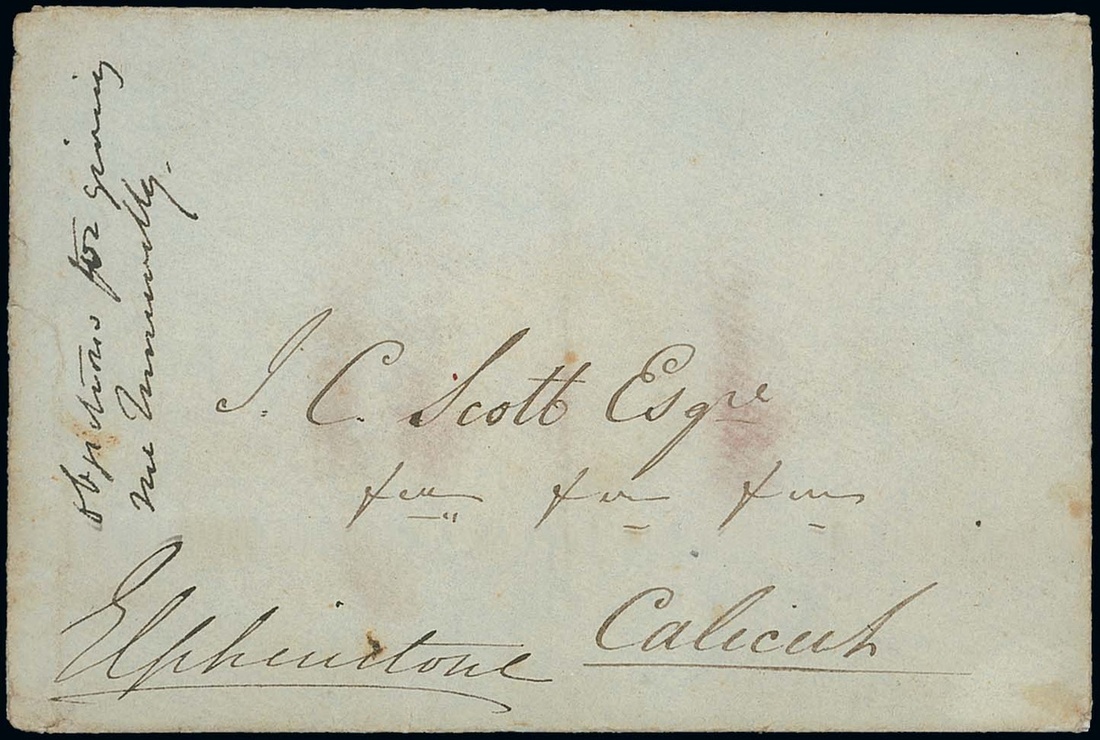 objections for giving
me Tinnevelly.
J. C. Scott Esqre
&c &c &c
Calicut
Elphinstone